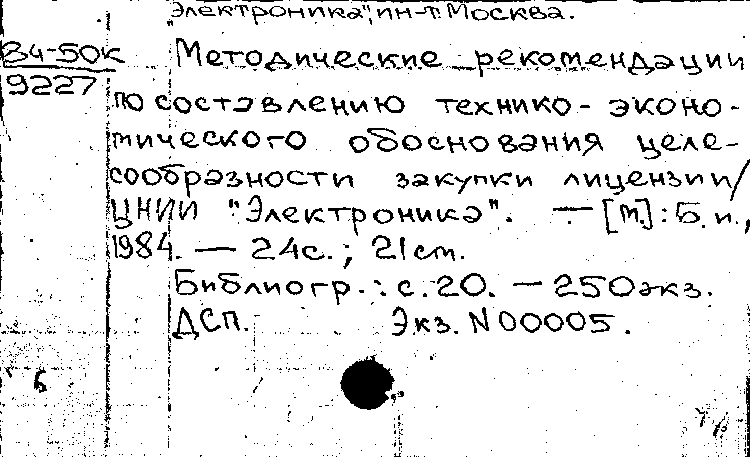 "Электроника", ин-т. Москва.
84-50к
9227
Методические рекомендации
по составлению технико-эконо-
мического обоснования целе-
сообразности закупки лицензии/
ЦНИИ "Электроника". — [М.]: Б. и.,
1984. — 24с.; 21см.
Библиогр.: с. 20. — 250экз.
ДСП. Экз. N 00005.
6